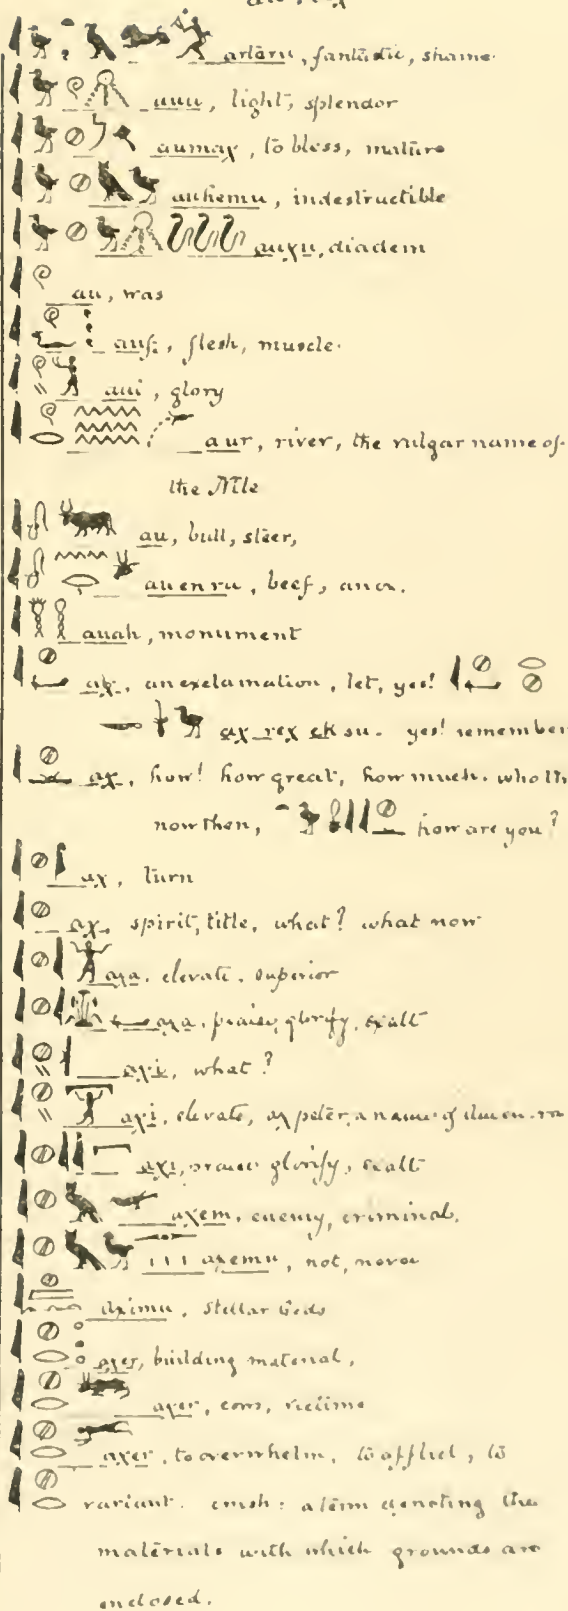 artaru, fantastic, shame
uuu, light, splendor
aumax, to bless, mature
auhemu, indestructible
auxu, diadem
au, was
auf, flesh, muscle.
aui, glory
aur, river, the vulgar name of
the Nile
au, bull, steer,
auenru, beef, an ox.
auah, monument
ax, an exclamation, let, yes!
ax rex ek su. yes! remember
ax, how! how great, how much. who
now then, how are you?
ax, turn
ax, spirit, title, what? what now
axa, elevate, superior
axa, praise, glorify, exalt
axi, what?
axi, elevate, ax peter, a name of
axi, praise glorify, exalt
axem, enemy, criminal.
axemu, not, never
aximu, Stellar Gods
axer, building material,
axer, cows, victims
axer, to overwhelm, to afflict, to
variant. crush: a term denoting the
materials with which grounds are
enclosed.